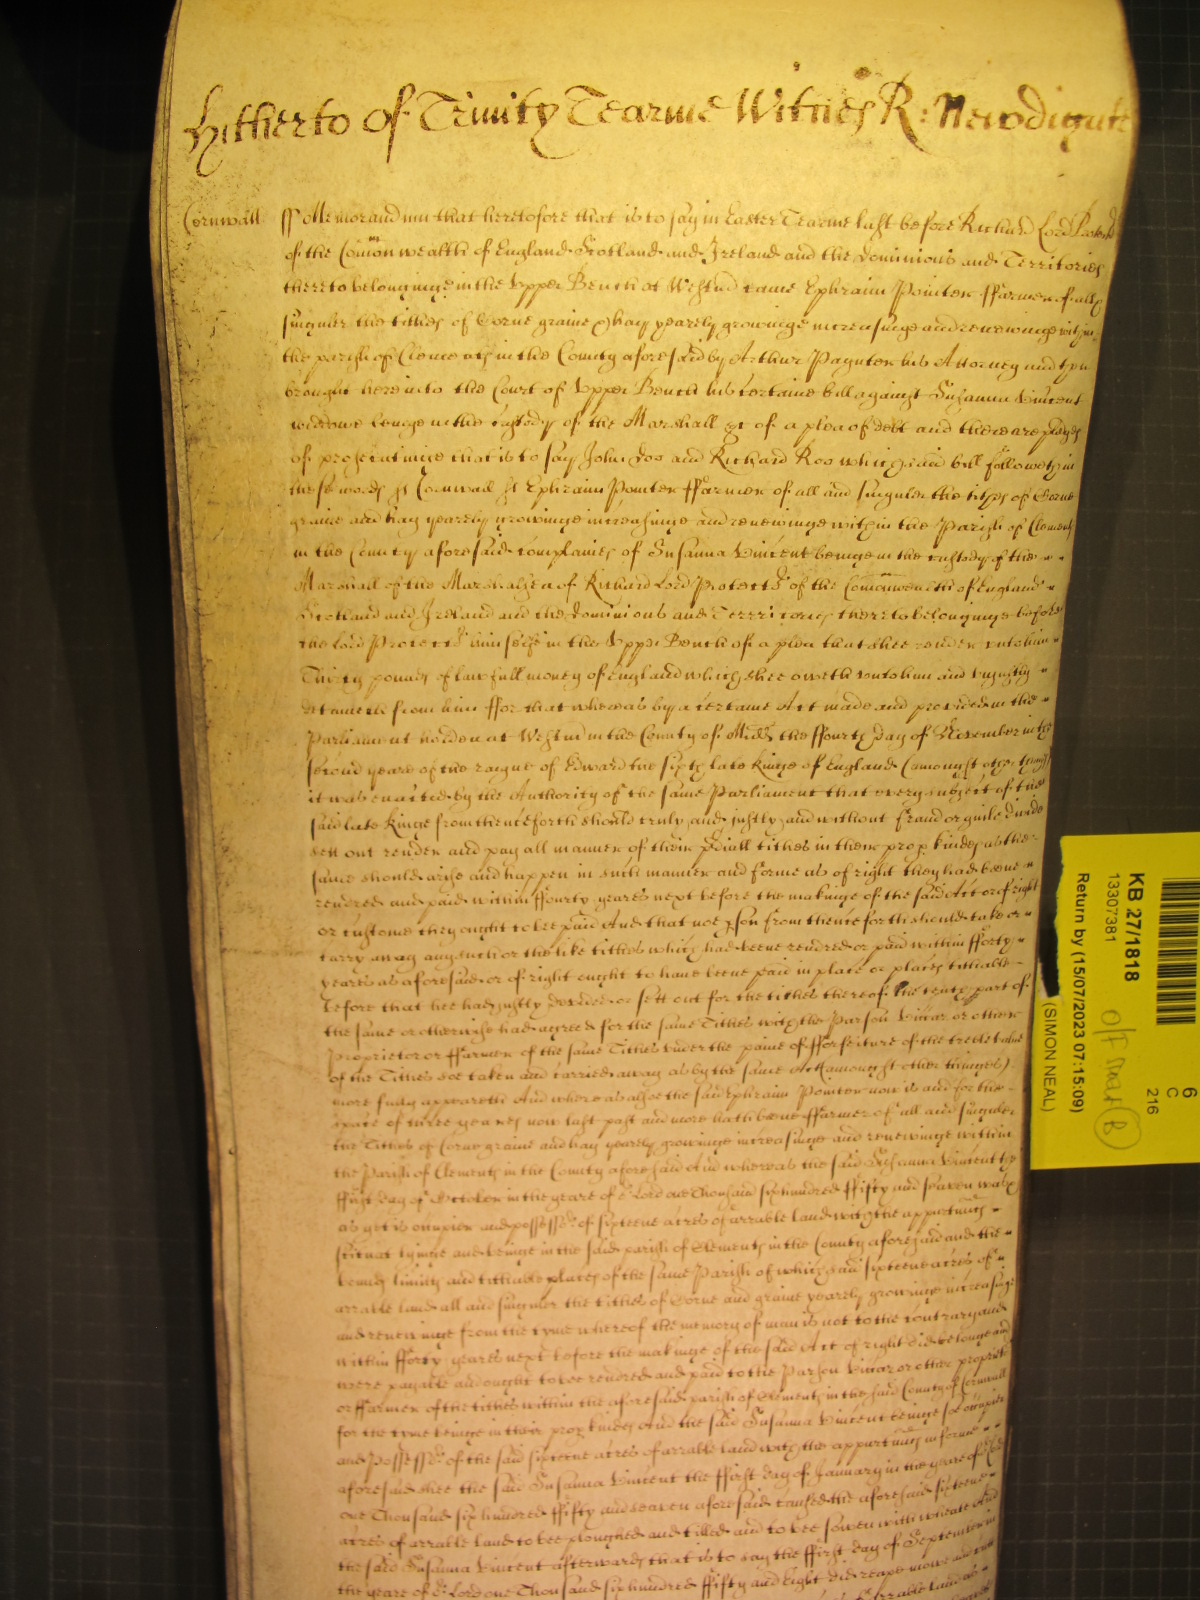 Hitherto of Trinity Tearme Witnes R: Newdigate
Cornwall ss Memorandum that heretofore that is to say in Easter Tearme last before Richard Lord Protector
of the Comon wealth of England Scotland and Ireland and the Dominions and Territories
thereto belonginge in the Upper Bench at Westmr came Ephraim Pointer ffarmer of all &
singuler the tithes of Corne graine & hay yearely growinge increasinge and renewinge within
the parish of Clements in the County aforesaid by Arthur Paynter his Attorney and then
brought here into the Court of Upper Bench his certaine bill against Susanna Vincent
widdowe beinge in the custody of the Marshall &c of a plea of debt and there are pledges
of prosecutinge that is to say John Doo and Richard Roo which said bill followeth in
these words ss Cornwall ss Ephraim Pointer ffarmer of all and singuler the tithes of Corne
graine and hay yearely growinge increasinge and renewinge within the Parish of Clements
in the County aforesaid complaines of Susanna Vincent beinge in the custody of the
Marshall of the Marshalsea of Richard Lord Protector of the Commonwealth of England
Scotland and Ireland and the Dominions and Territories thereto belonginge before
the Lord Protector himselfe in the Upper Bench of a plea that shee render unto him
Thirty pounds of lawfull money of England which shee oweth unto him and unjustly
detaineth from him ffor that whereas by a certaine Act made and provided in the
Parliament holden at Westmr in the County of Midds the ffourth day of November in the
second yeare of the raigne of Edward the sixth late kinge of England (amongst other things)
it was enacted by the Authority of the same Parliament that every subject of the
said late kinge from thenceforth should truly and justly and without fraud or guile divide
sett out render and pay all manner of their prediall tithes in their proper kindes as the
same should arise and happen in such manner and forme as of right they had beene
rendred and paid within ffourty yeares next before the makinge of the said Act or of right
or custome they ought to bee paid And that noe person from thenceforth should take or
carry away any such or the like tithes which had beene rendred or paid within fforty
yeares as aforesaid or of right ought to have beene paid in place or places tithable
before that hee had justly devided or sett out for the tithes thereof the tenth part of
the same or otherwise had agreed for the same Tithes with the Parson Viccar or other
Proprietor or ffarmer of the same Tithes under the paine of fforfeiture of the treble value
of the Tithes soe taken and carried away as by the same Act (amongst other thinges)
more fully appeareth And whereas alsoe the said Ephraim Pointer now is and for the
space of three yeares now last past and more hath beene ffarmer of all and singuler
the Tithes of Corne graine and hay yearely growinge increasinge and renewinge within
the Parish of Clements in the County aforesaid And whereas the said Susanna Vincent the
ffirst day of October in the yeare of or Lord one Thousand six hundred ffifty and seaven was &
as yet is occupier and possessed of sixteene acres of arrable land with the appurtennces
scituat lyinge and beinge in the said parish of Clements in the County aforesaid and the
bounds limitts and tithable places of the same Parish of which said sixteene acres of
arrable land all and singuler the tithes of Corne and graine yearely growinge increasinge
and renewinge from the tyme whereof the memory of man is not to the contrary and
within fforty yeares next before the makinge of the said Act of right did belonge and
were payable and ought to bee rendred and paid to the Parson Viccar or other proprietor
or ffarmer of the tithes within the aforesaid parish of Clements in the said County of Cornwall
for the tyme beinge in their proper kindes And the said Susanna Vincent beinge soe occupier
and Possessed of the said sixteene acres of arrable land with the appurtennces in forme
aforesaid shee the said Susanna Vincent the ffirst day of January in the yeare of or Lord
one Thousand six hundred ffifty and seaven aforesaid caused the aforesaid sixteene
acres of arrable land to bee ploughed and tilled and to bee sowen with wheate And
the said Susanna Vincent afterwards that is to say the ffirst day of September in
the yeare of or Lord one Thousand six hundred ffifty and Eight did reape mowe and
arrable land as
KB 27/1818
13307381
Return by (15/07/2023 07:15:09)
(SIMON NEAL)
6
C
216